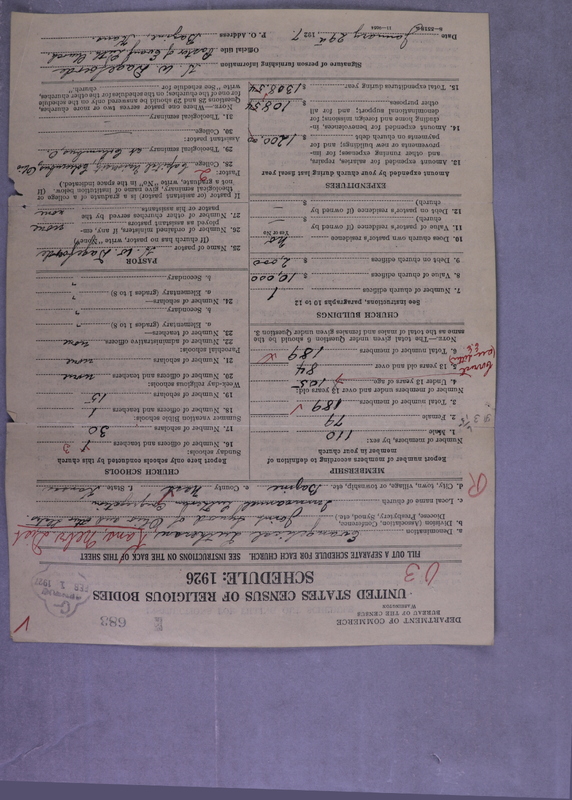 683
DEPARTMENT OF COMMERCE
BUREAU OF THE CENSUS
WASHINGTON
UNITED STATES CENSUS OF RELIGIOUS BODIES
SCHEDULE: 1926
FEB 3 1927
FILL OUT A SEPARATE SCHEDULE FOR EACH CHURCH. SEE INSTRUCTIONS ON THE BACK OF THIS SHEET
a. Denomination Evangelical Lutheran
b. Division (Association, Conference, Diocese, Presbytery, Synod, etc.) Joint Synod of Ohio and other States
c. Local name of church Immanuel Lutheran Congregation
d. City, town, village, or township, etc. Bazine e. County Ness f. State Kansas
MEMBERSHIP
Report number of members according to definition of member in year church
Number of members, by sex:
1. Male 110
2. Female 79
3. Total number of members 189
Number of members under and over 13 years old:
4. Under 13 years of age 105
5. 13 years old and over 84
6. Total number of members 189
NOTE.—The total given under Question 6 should be the same as the total of males and females given under Question 3.
CHURCH BUILDINGS
See instructions, paragraphs 10 to 12
7. Number of church edifices 1
8. Value of church edifices $ 10,000
9. Debt on church edifices $ 2,000
10. Does church own pastor's residence no
Yes or No
11. Value of pastor's residence (if owned by church) $
12. Debt on pastor's residence (if owned by church) $
EXPENDITURES
Amount expended by your church during last fiscal year
13. Amount expended for salaries, repairs, and other running expenses; for improvements or new buildings; and for payments on church debt $ 1200.00
14. Amount expended for benevolences, including home and foreign missions; for denominational support; and for all other purposes $ 108.54
15. Total expenditures during year $ 1308.54
CHURCH SCHOOLS
Report here only schools conducted by this church
Sunday schools:
16. Number of officers and teachers
17. Number of scholars 30
Summer vacation Bible schools:
18. Number of officers and teachers 1
19. Number of scholars 15
Week-day religious schools:
20. Number of officers and teachers none
21. Number of scholars none
Parochial schools:
22. Number of administrative officers none
23. Number of teachers—
a. Elementary (grades 1 to 8)
b. Secondary
24. Number of scholars—
a. Elementary (grades 1 to 8)
b. Secondary
PASTOR
25. Name of pastor
(If church has no pastor, write "None")
26. Number of ordained ministers, if any, employed as assistant pastors none
27. Number of other churches served by the pastor or his assistants none
If pastor or assistant pastor is a graduate of a college or theological seminary, give name of institution below. (If not a graduate, write "No" in the space indicated.)
Pastor:
28. College Capital University, Columbus, Ohio
29. Theological seminary at Columbus O.
Assistant pastor:
30. College
31. Theological seminary
NOTE.—Where one pastor serves two or more churches, Questions 28 and 29 should be answered only on the schedule for one of the churches; on the schedules for the other churches, write "See schedule for church."
Signature of person furnishing information
Official title Pastor of Evang. Luth. Church
P. O. Address Bazine, Kans.
Date January 29th, 1927